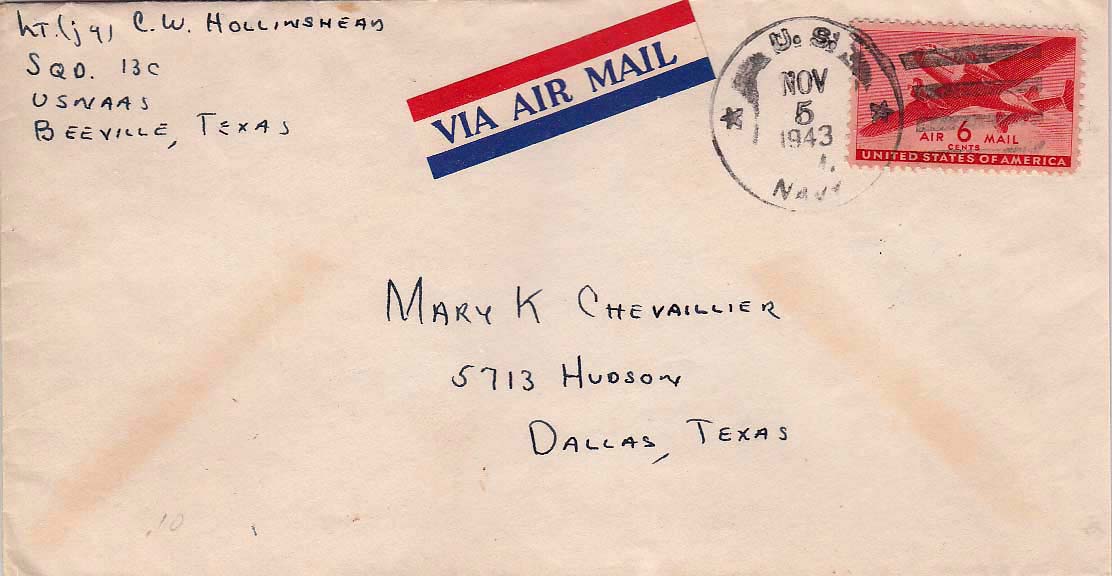 Lt. (jg) C.W. Hollinshead
Sqd. 13C
USNAAS
Beeville, Texas
VIA AIR MAIL
U. S.
NOV
5
1943
Navy
AIR 6 MAIL
CENTS
UNITED STATES OF AMERICA
Mary K Chevaillier
5713 Hudson
Dallas, Texas
10